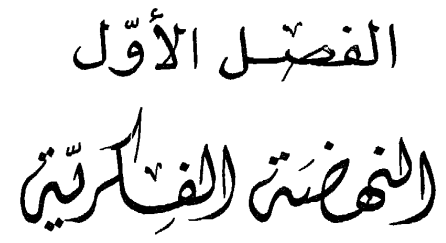 الفصل الأوّل
النهضَة الفِكريّة